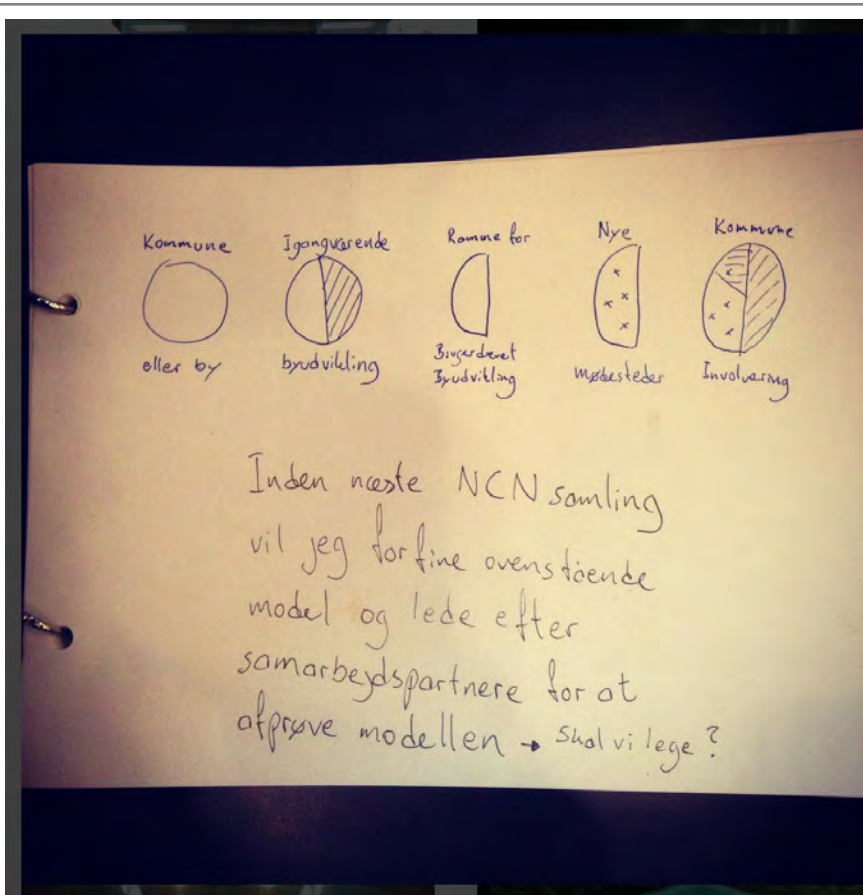 Kommune
eller by
Igangværende
byudvikling
Ramme for
Brugerdrevet
Byudvikling
Nye
mødesteder
Kommune
Involvering
Inden næste NCN samling
vil jeg forfine ovenstående
model og lede efter
samarbejdspartnere for at
afprøve modellen → Skal vi lege?